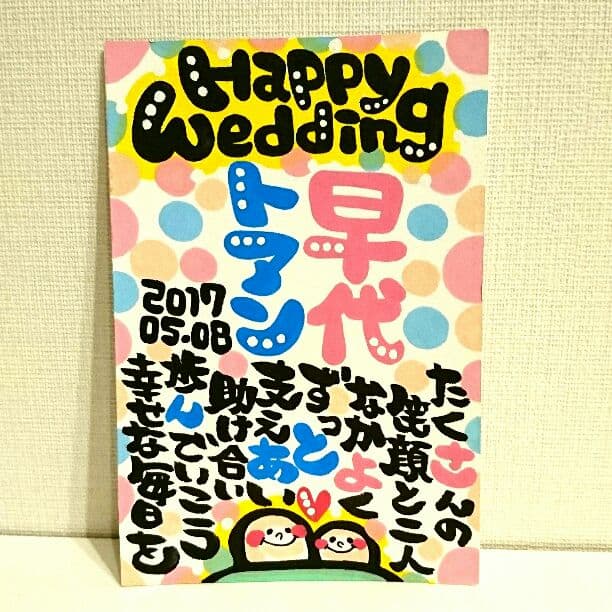 Happy
Wedding
早代
トアン
2017
05.08
たくさんの
笑顔と二人
なかよく
ずっと
支えあい
助け合い
歩んでいこう
幸せな毎日を